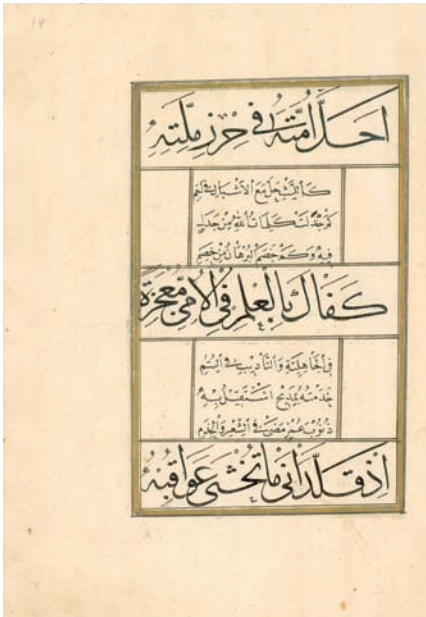 19
اَحَلَّ اُمَّتَهُ فِي حِرْزِ مِلَّتِهِ
كَاللَّيْثِ حَلَّ مَعَ الْاَشْبَالِ فِي اَجَمِ
كَمْ جَدَّلَتْ كَلِمَاتُ اللّٰهِ مِنْ جَدَلٍ
فِيهِ وَكَمْ خَصَمَ الْبُرْهَانُ مِنْ خَصِمِ
كَفَاكَ بِالْعِلْمِ فِي الْاُمِّيِّ مُعْجِزَةً
فِي الْجَاهِلِيَّةِ وَالتَّأْدِيبِ فِي الْيُتُمِ
خَدَمْتُهُ بِمَدِيحٍ اَسْتَقِيلُ بِهِ
ذُنُوبَ عُمْرٍ مَضَى فِي الشِّعْرِ وَالْخِدَمِ
اِذْ قَلَّدَانِيَ مَا تُخْشَى عَوَاقِبُهُ